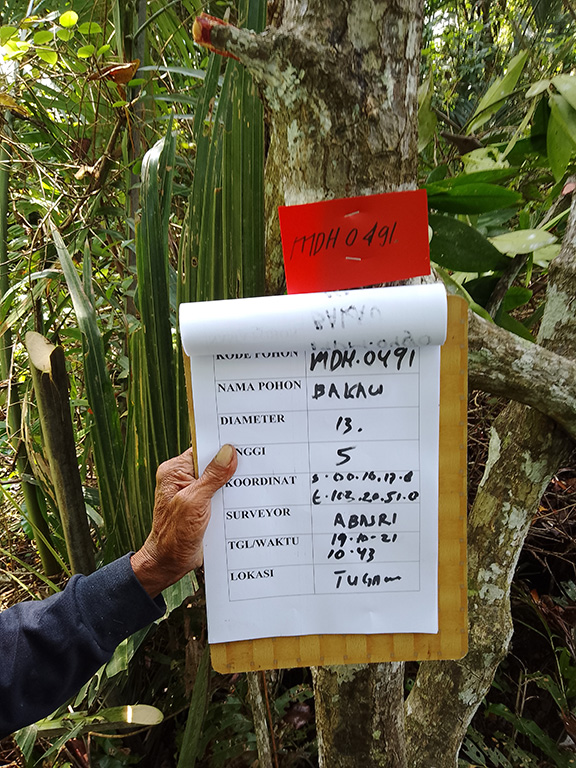 MDH 0491.
KODE POHON MDH.0491
NAMA POHON BAKAU
DIAMETER 13.
NGGI 5
KOORDINAT S.00.16.17.8
E.103.20.51.0
SURVEYOR ABASRI
TGL/WAKTU 19.10-21
10.43
LOKASI